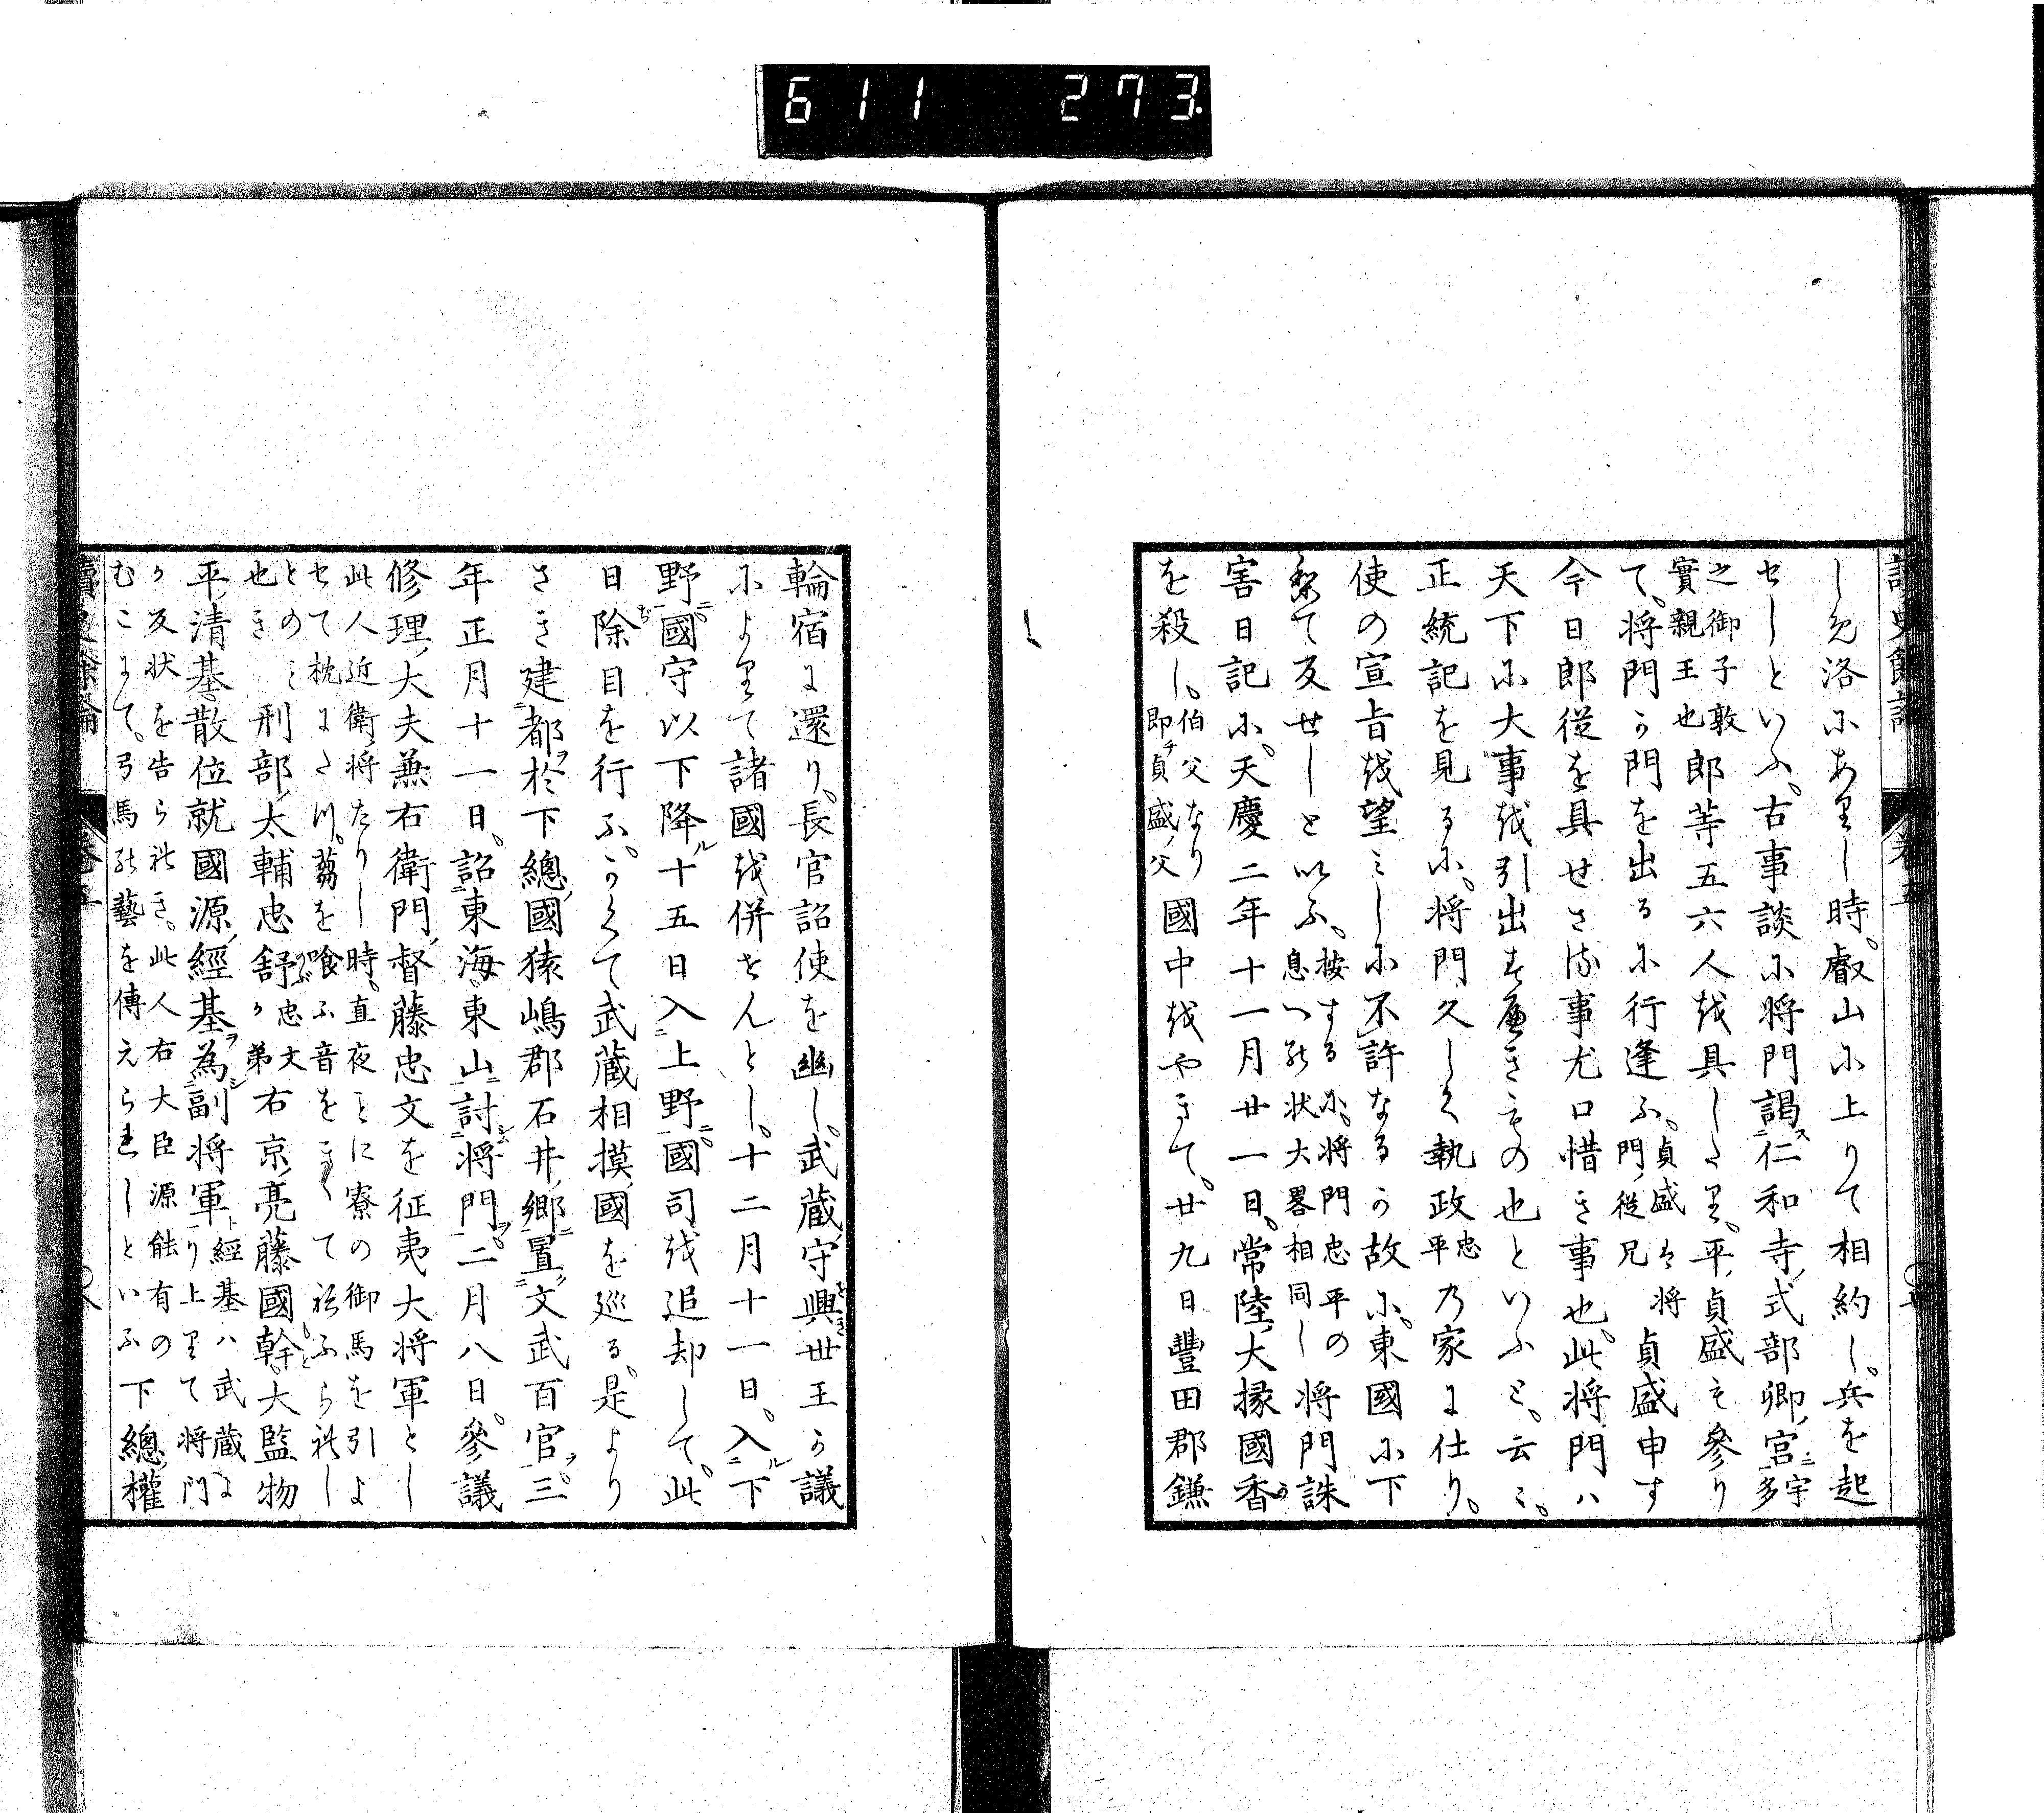 611 273
讀史餘論 卷五
し比洛にありし時。叡山に上りて相約し。兵を起
せしといふ。古事談に将門謁仁和寺式部卿宮宇多
之御子敦實親王也郎等五六人を具したり。平貞盛も參り
て。将門か門を出るに行逢ふ。貞盛は将門従兄貞盛申す
今日郎従を具せさる事尤口惜き事也。此将門ハ
天下に大事を引出すへきもの也といふと。云〻。
正統記を見るに。将門久しく執政忠平乃家に仕り。
使の宣旨を望みしに不許なるか故に。東國に下
りて反せしと以ふ。按するに。将門忠平の息への状大畧相同し将門誅
害日記に。天慶二年十一月廿一日。常陸大掾國香
を殺し。伯父なり即チ貞盛ノ父國中をやきて。廿九日豐田郡鎌
輪宿に還り。長官詔使を幽し。武蔵守興世王か議
によりて諸國を併せんとし。十二月十一日。入下
野國守以下降ル十五日入上野國國司を追却して。此
日除目を行ふ。かくて武蔵相摸國を巡る。是より
さき建都於下總國猿嶋郡石井郷置文武百官。三
年正月十一日。詔東海東山討将門。二月八日。參議
修理大夫兼右衛門督藤忠文を征夷大将軍とし
此人近衛将たりし時。直夜ことに寮の御馬を引よ
せて枕にたつ。蒭を喰ふ音をきくて祢ふられし
とのミ也き 刑部太輔忠舒忠文か弟右京亮藤國幹。大監物
平清基散位就國源經基為副将軍經基ハ武蔵より上りて将門
か反状を告られき。此人右大臣源能有の
むこにて。弓馬の藝を傳えられしといふ下總權
讀史餘論 卷五 〇八